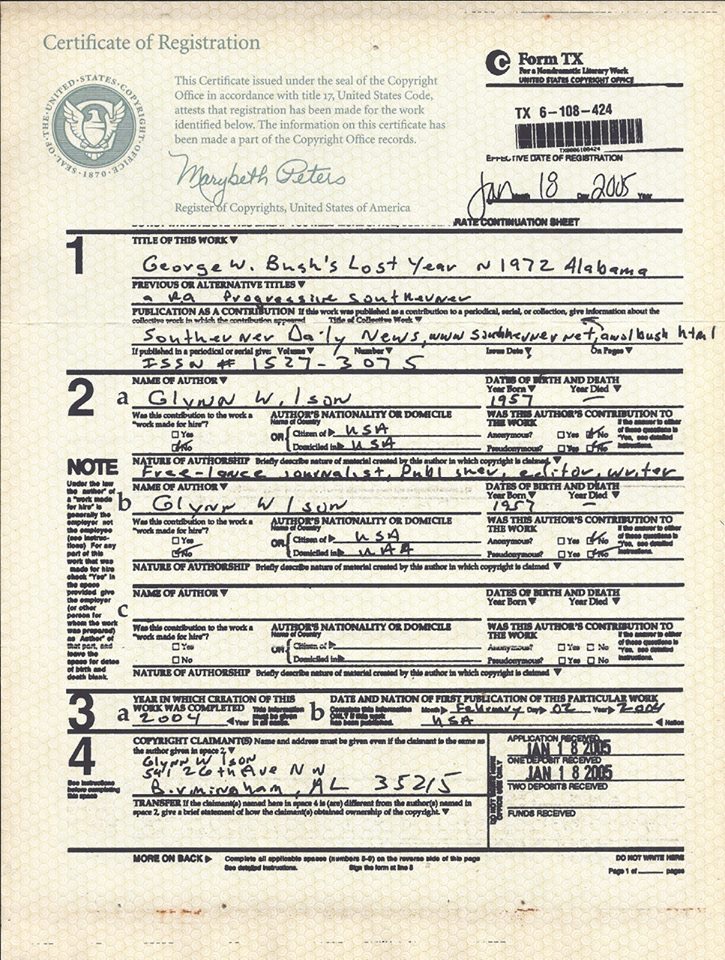 Certificate of Registration
This Certificate issued under the seal of the Copyright
Office in accordance with title 17, United States Code,
attests that registration has been made for the work
identified below. The information on this certificate has
been made a part of the Copyright Office records.
Marybeth Peters
Register of Copyrights, United States of America
SEAL OF THE UNITED STATES COPYRIGHT OFFICE
1870
Form TX
For a Nondramatic Literary Work
UNITED STATES COPYRIGHT OFFICE
TX 6-108-424
TX0006108424
EFFECTIVE DATE OF REGISTRATION
Jan 18 2005
Month Day Year
RATE CONTINUATION SHEET
1
TITLE OF THIS WORK ▼
George W. Bush's Lost Year N 1972 Alabama
PREVIOUS OR ALTERNATIVE TITLES ▼
Progressive Southerner
PUBLICATION AS A CONTRIBUTION If this work was published as a contribution to a periodical, serial, or collection, give information about the
collective work in which the contribution appeared Title of Collective Work ▼
Southerner Daily News, www southerner net, awolbush html
If published in a periodical or serial give: Volume ▼ Number ▼ Issue Date ▼ On Pages ▼
ISSN # 1527-3075
2
a
NAME OF AUTHOR ▼
Glynn Wilson
DATES OF BIRTH AND DEATH
Year Born ▼ Year Died ▼
1957 —
Was this contribution to the work a
"work made for hire"?
☐ Yes
☑ No
AUTHOR'S NATIONALITY OR DOMICILE
Name of Country
OR
Citizen of ▶ USA
Domiciled in ▶ USA
WAS THIS AUTHOR'S CONTRIBUTION TO
THE WORK
Anonymous? ☐ Yes ☑ No
Pseudonymous? ☐ Yes ☑ No
If the answer to either
of these questions is
"Yes, see detailed
instructions.
NATURE OF AUTHORSHIP Briefly describe nature of material created by this author in which copyright is claimed ▼
Free-lance journalist, Publisher, editor, writer
NOTE
Under the law
the author" of
a "work made
for hire" is
generally the
employer not
the employee
(see instruc-
tions) For any
part of this
work that was
made for hire
check "Yes" in
the space
provided give
the employer
(or other
person for
whom the work
was prepared)
as Author" of
that part, and
leave the
space for dates
of birth and
death blank.
b
NAME OF AUTHOR ▼
Glynn Wilson
DATES OF BIRTH AND DEATH
Year Born ▼ Year Died ▼
1957 —
Was this contribution to the work a
"work made for hire"?
☐ Yes
☑ No
AUTHOR'S NATIONALITY OR DOMICILE
Name of Country
OR
Citizen of ▶ USA
Domiciled in ▶
WAS THIS AUTHOR'S CONTRIBUTION TO
THE WORK
Anonymous? ☐ Yes ☑ No
Pseudonymous? ☐ Yes ☑ No
If the answer to either
of these questions is
"Yes, see detailed
instructions.
NATURE OF AUTHORSHIP Briefly describe nature of material created by this author in which copyright is claimed ▼
c
NAME OF AUTHOR ▼
DATES OF BIRTH AND DEATH
Year Born ▼ Year Died ▼
Was this contribution to the work a
"work made for hire"?
☐ Yes
☐ No
AUTHOR'S NATIONALITY OR DOMICILE
Name of Country
OR
Citizen of ▶
Domiciled in ▶
WAS THIS AUTHOR'S CONTRIBUTION TO
THE WORK
Anonymous? ☐ Yes ☐ No
Pseudonymous? ☐ Yes ☐ No
If the answer to either
of these questions is
"Yes, see detailed
instructions.
NATURE OF AUTHORSHIP Briefly describe nature of material created by this author in which copyright is claimed ▼
3
a
YEAR IN WHICH CREATION OF THIS
WORK WAS COMPLETED This information
must be given
in all cases.
2004 ◀ Year
b
DATE AND NATION OF FIRST PUBLICATION OF THIS PARTICULAR WORK
Complete this information
ONLY if this work
has been published.
Month ▶ February Day ▶ 02 Year ▶ 2004
USA ◀ Nation
4
See instructions
before completing
this space
COPYRIGHT CLAIMANT(S) Name and address must be given even if the claimant is the same as
the author given in space 2. ▼
Glynn Wilson
541 26th Ave NW
Birmingham, AL 35215
TRANSFER If the claimant(s) named here in space 4 is (are) different from the author(s) named in
space 2, give a brief statement of how the claimant(s) obtained ownership of the copyright. ▼
DO NOT WRITE HERE
OFFICE USE ONLY
APPLICATION RECEIVED
JAN 18 2005
ONE DEPOSIT RECEIVED
JAN 18 2005
TWO DEPOSITS RECEIVED
FUNDS RECEIVED
MORE ON BACK ▶
Complete all applicable spaces (numbers 5-9) on the reverse side of this page
See detailed instructions. Sign the form at line 8
DO NOT WRITE HERE
Page 1 of pages